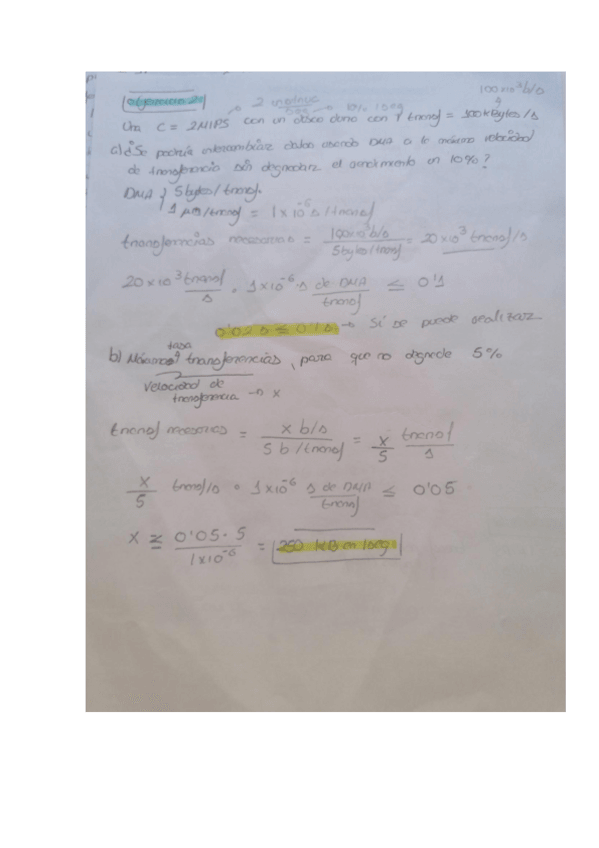 100x10³ b/s
Ejercicio 2
2 minstruc/seg → 10% 1seg
Una C = 2MIPS con un disco duro con V transf = 100 kBytes/s
a) ¿Se podría intercambiar datos usando DMA a la máxima velocidad
de transferencia sin degradar el rendimiento en 10%?
DMA } 5 bytes/transf.
1 µs/transf = 1x10⁻⁶ s/transf
transferencias necesarias = 100x10³ b/s / 5 bytes/transf = 20x10³ transf/s
20x10³ transf/s · 1x10⁻⁶ s de DMA/transf ≤ 0'1
0'02 s ≤ 0'1 s → Sí se puede realizar
tasa
b) Máxima transferencias, para que no degrade 5%
Velocidad de
transferencia → x
transf necesarias = x b/s / 5 b/transf = x/5 transf/s
x/5 transf/s · 1x10⁻⁶ s de DMA/transf ≤ 0'05
x ≥ 0'05·5 / 1x10⁻⁶ = 250 kB en 1seg